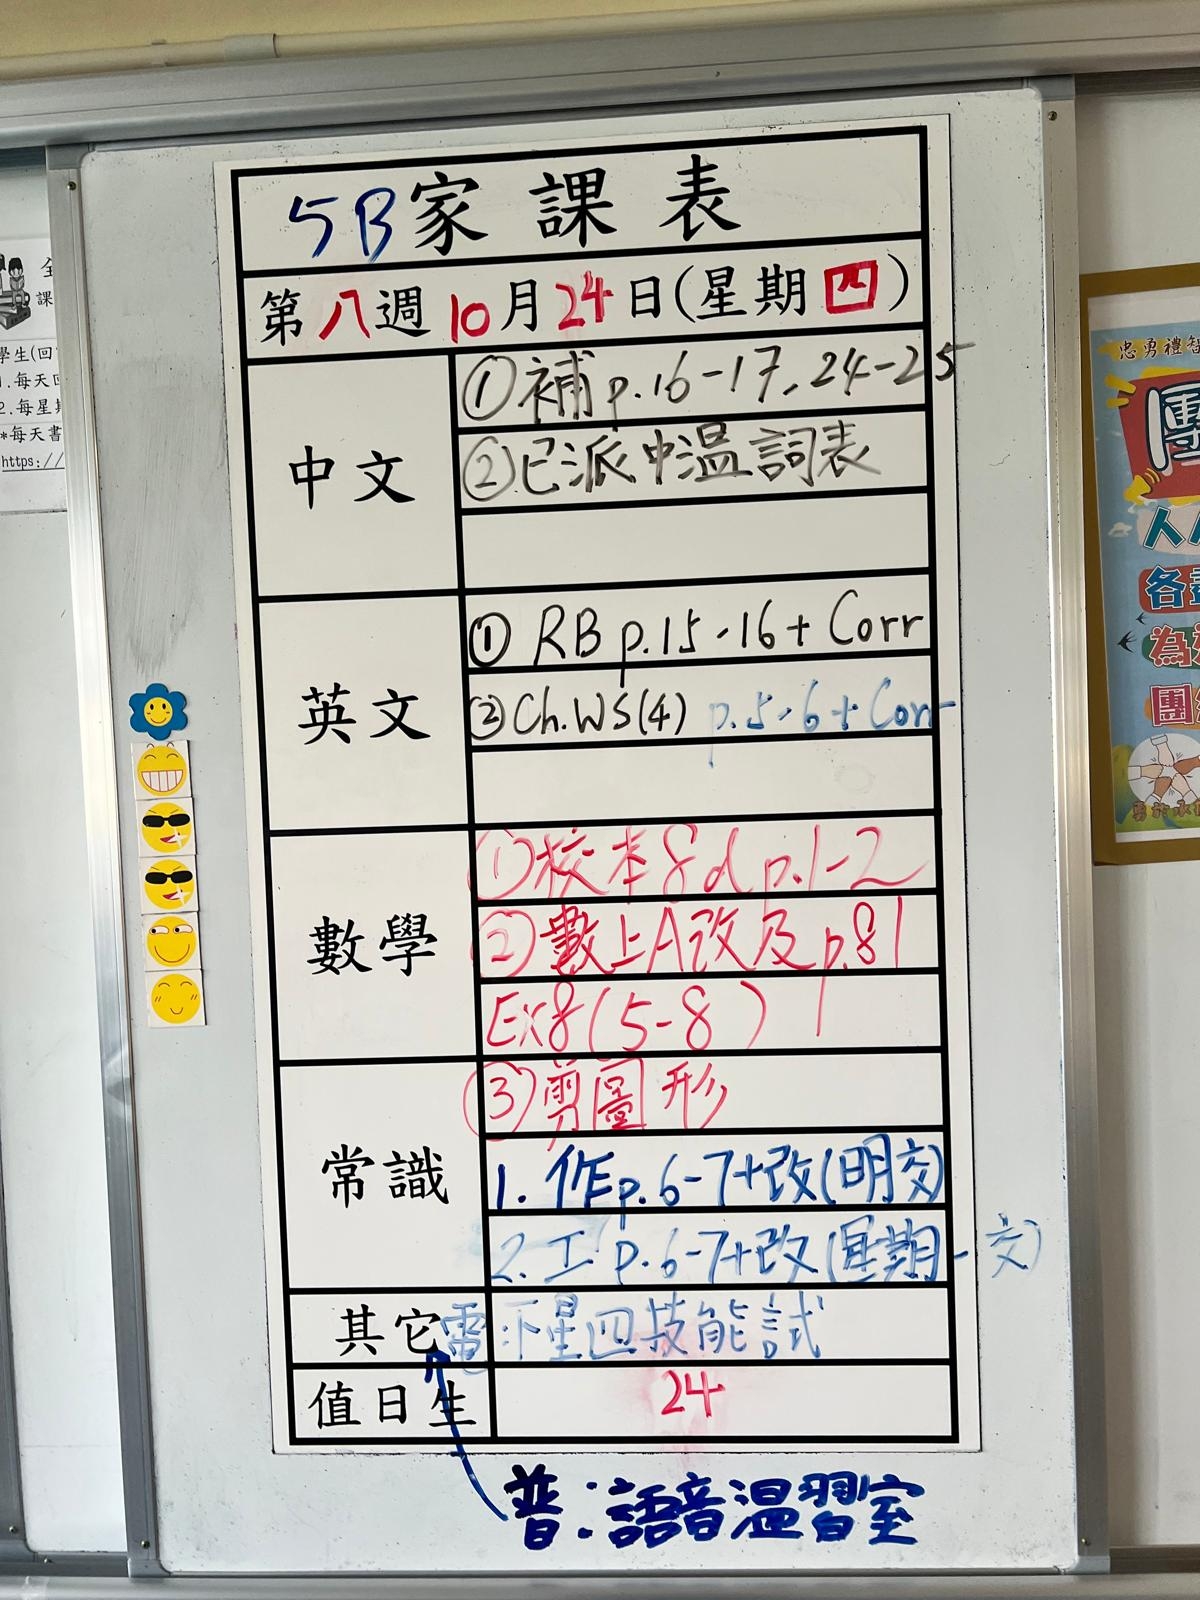 5B家課表
第八週10月24日(星期四)
中文
①補p.16-17,24-25
②已派中溫詞表
英文
① RB p.15-16+ Corr
②Ch.WS(4) p.5-6+Corr
數學
①校本8d p.1-2
②數上A改及p.81
Ex8(5-8)
③剪圖形
常識
1. 作p.6-7+改(明交)
2. 工 p.6-7+改(星期一交)
其它
電:下星四技能試
值日生
24
普:語音溫習室
全
課
學生(回
1.每天回
2.每星期
*每天書
https://
忠勇禮智
團
人人
各盡
為
團